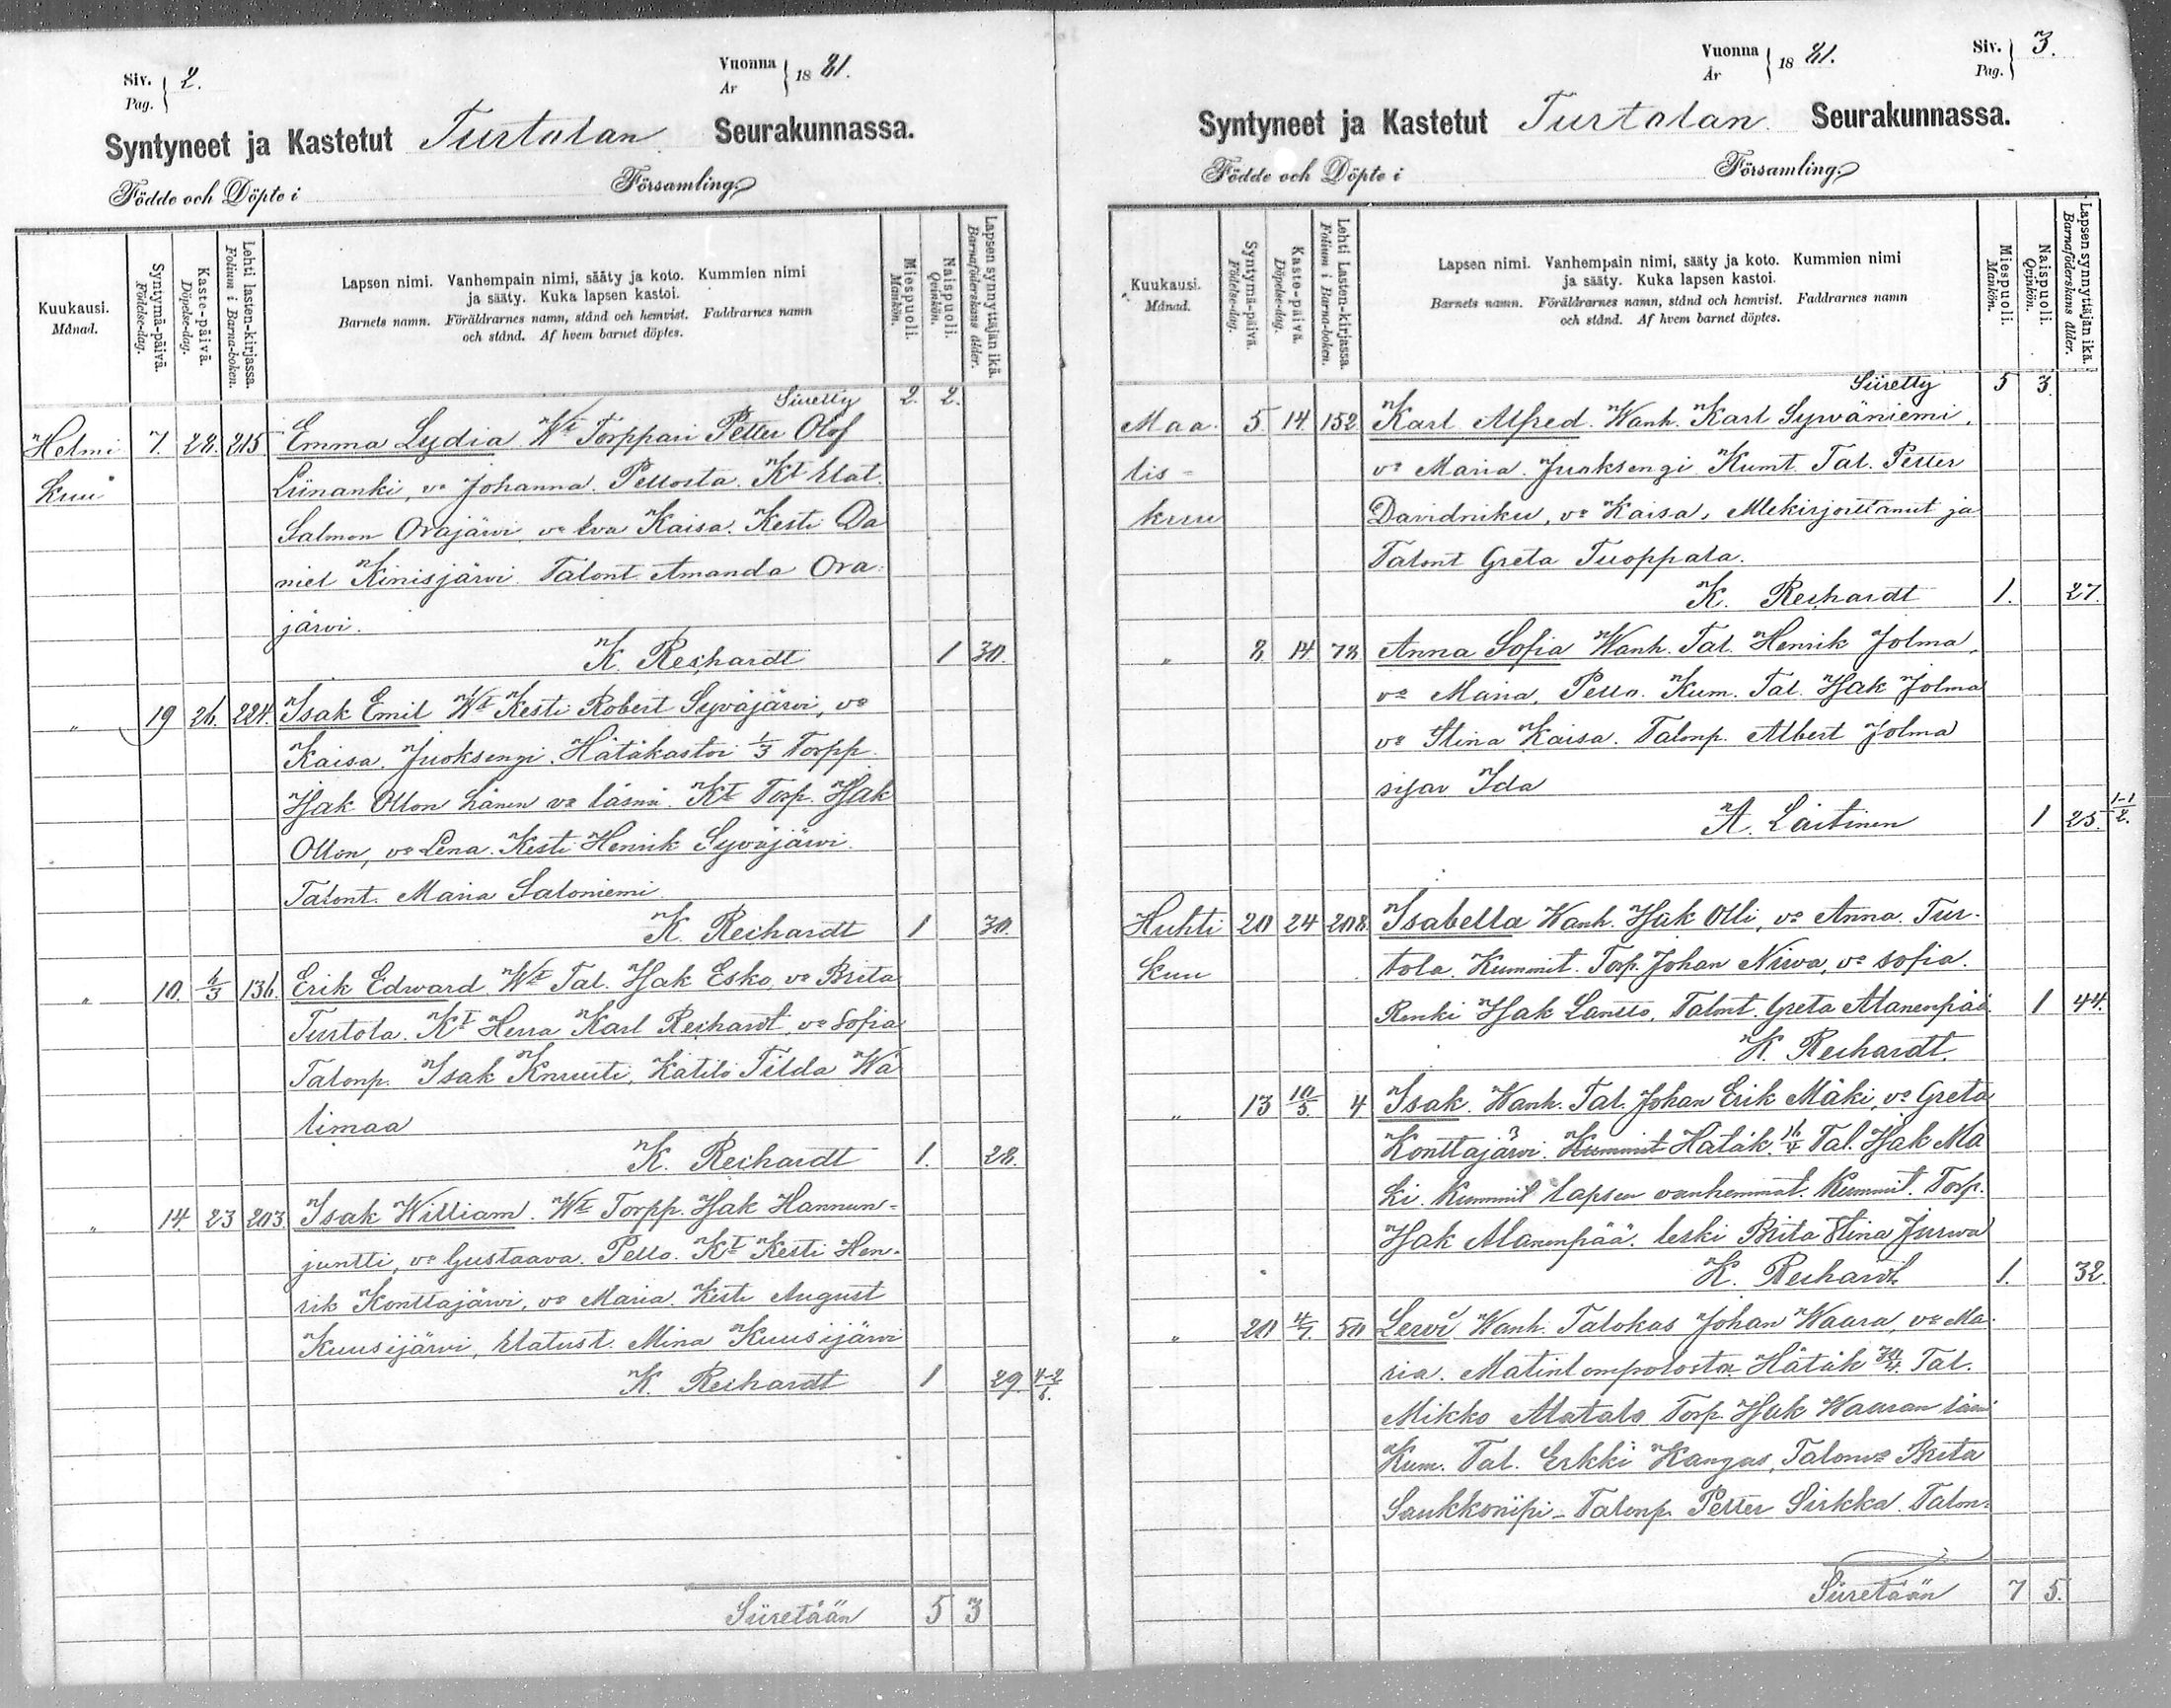 Siv. 2.
Pag.
Vuonna 1881.
År
Syntyneet ja Kastetut Turtolan Seurakunnassa.
Födde och Döpte i Församling.
Kuukausi.
Månad.
Syntymä-päivä.
Födelse-dag.
Kaste-päivä.
Döpelse-dag.
Lehti lasten-kirjassa.
Folium i Barna-boken.
Lapsen nimi. Vanhempain nimi, sääty ja koto. Kummien nimi
ja sääty. Kuka lapsen kastoi.
Barnets namn. Föräldrarnes namn, stånd och hemvist. Faddrarnes namn
och stånd. Af hvem barnet döptes.
Miespuoli.
Mankön.
Naispuoli.
Qvinkön.
Lapsen synnyttäjän ikä.
Barnaföderskans ålder.
Siiretty 2. 2.
Helmi 7. 28. 215 Emma Lydia Wt Torppari Petter Olof
kuu Liinanki, vo Johanna. Pellosta. Kt Elat.
Salmon Orajärvi, vo Eva Kaisa. Kesti Da
niel Kinisjärvi. Talont. Amanda Ora
järvi.
K. Reichardt 1 30.
" 19 26. 224. Isak Emil Wt Kesti Robert Syväjärvi, vo
Kaisa. Juoksengi. Hätäkastoi 1/3 Torpp.
Isak Ollon hänen vo läsnä. Kt Torp. Isak
Ollon, vo Lena. Kesti Henrik Syväjärvi.
Talont. Maria Saloniemi
K. Reichardt 1 30.
" 10. 6/3 136. Erik Edward. Wt Tal. Isak Esko, vo Brita
Turtola. Kt Herra Karl Reichardt, vo Sofia
Talonp. Isak Knuuti, Kätilö Tilda Wä
limaa
K. Reichardt 1. 28.
" 14. 23 203. Isak William. Wt Torpp. Isak Hannun-
juntti, vo Gustaava. Pello. Kt Kesti Hen-
rik Konttajärvi, vo Maria. Kesti August
Kuusijärvi, Elatust. Mina Kuusijärvi
K. Reichardt 1 29. 4-2
Siiretään 5 3
Vuonna 1881.
År
Siv. 3.
Pag.
Syntyneet ja Kastetut Turtolan Seurakunnassa.
Födde och Döpte i Församling.
Kuukausi.
Månad.
Syntymä-päivä.
Födelse-dag.
Kaste-päivä.
Döpelse-dag.
Lehti Lasten-kirjassa.
Folium i Barna-boken.
Lapsen nimi. Vanhempain nimi, sääty ja koto. Kummien nimi
ja sääty. Kuka lapsen kastoi.
Barnets namn. Föräldrarnes namn, stånd och hemvist. Faddrarnes namn
och stånd. Af hvem barnet döptes.
Miespuoli.
Mankön.
Naispuoli.
Qvinkön.
Lapsen synnyttäjän ikä.
Barnaföderskans ålder.
Siiretty 5 3
Maa- 5. 14. 152 Karl Alfred. Wanh. Karl Syväniemi,
lis- vo Maria. Juoksengi Kumt. Tal. Petter
kuu Davidniku, vo Kaisa, Allekirjoittanut ja
Talont Greta Tuoppala.
K. Reichardt 1. 27.
" 8. 14 78 Anna Sofia Wanh. Tal. Henrik Jolma,
vo Maria, Pello. Kum. Tal. Isak Jolma
vo Stina Kaisa. Talonp. Albert Jolma
sisar Ida
A. Laitinen 1 25. 1-1/2.
Huhti 20 24 208. Isabella Wanh. Isak Olli, vo Anna. Tur-
kuu tola. Kummit. Torp. Johan Niva, vo Sofia.
Renki Isak Lantto, Talont. Greta Alanenpää. 1 44.
K. Reichardt.
" 13 10/5. 4 Isak. Wanh. Tal. Johan Erik Mäki, vo Greta
Konttajärvi. Kummit Hätäk. 16/4 Tal. Isak Mä
ki. Kummit lapsen vanhemmat. Kummit. Torp.
Isak Alanenpää. leski Brita Stina Jurva
K. Reichardt 1. 32.
" 20 50 Leevi Wanh. Talokas Johan Waara, vo Ma-
ria. Matinlompolosta. Hätäk Tal.
Mikko Alatalo Torp. Isak Waaran läsnä
Kum. Tal. Erkki Kangas, Talonvo Brita
Saukkoriipi - Talonp. Petter Sirkka. Talon-
Siiretään 7 5.